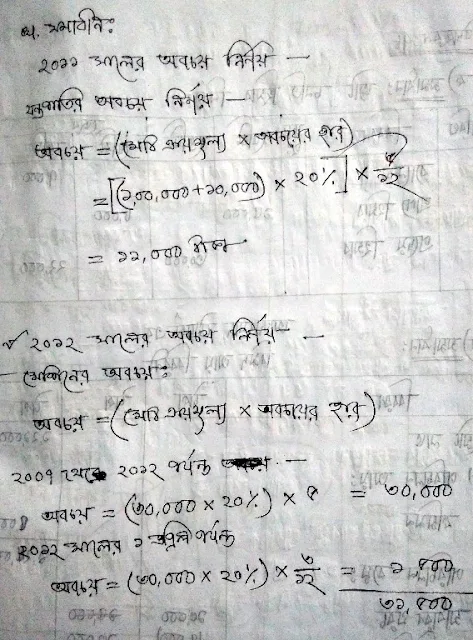 খ. সমাধান:
২০১১ সালের অবচয় নির্নয় —
যন্ত্রপাতির অবচয় নির্নয় —
অবচয় = (মোট ক্রয়মূল্য × অবচয়ের হার)
= [(১,০০,০০০+১০,০০০) × ২০%] × ৬/১২
= ১১,০০০ টাকা
✓ ২০১২ সালের অবচয় নির্নয় —
— মেশিনের অবচয়:
অবচয় = (মোট ক্রয়মূল্য × অবচয়ের হার)
২০০৭ থেকে ২০১২ পর্যন্ত —
অবচয় = (৩০,০০০ × ২০%) × ৫ = ৩০,০০০
২০১২ সালের ১ এপ্রিল পর্যন্ত
অবচয় = (৩০,০০০ × ২০%) × ৩/১২ = ১,৫০০
৩১,৫০০